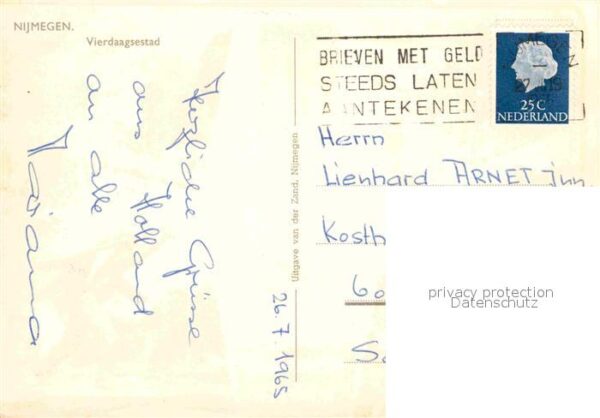 NIJMEGEN.
Vierdaagsestad
Herzliche Grüsse
aus Holland
an alle
26.7.1965
Uitgave van der Zand, Nijmegen
BRIEVEN MET GELD
STEEDS LATEN
AANTEKENEN
25 C
NEDERLAND
Herrn
Lienhard ARNET jun
Kosth
60
S
privacy protection
Datenschutz